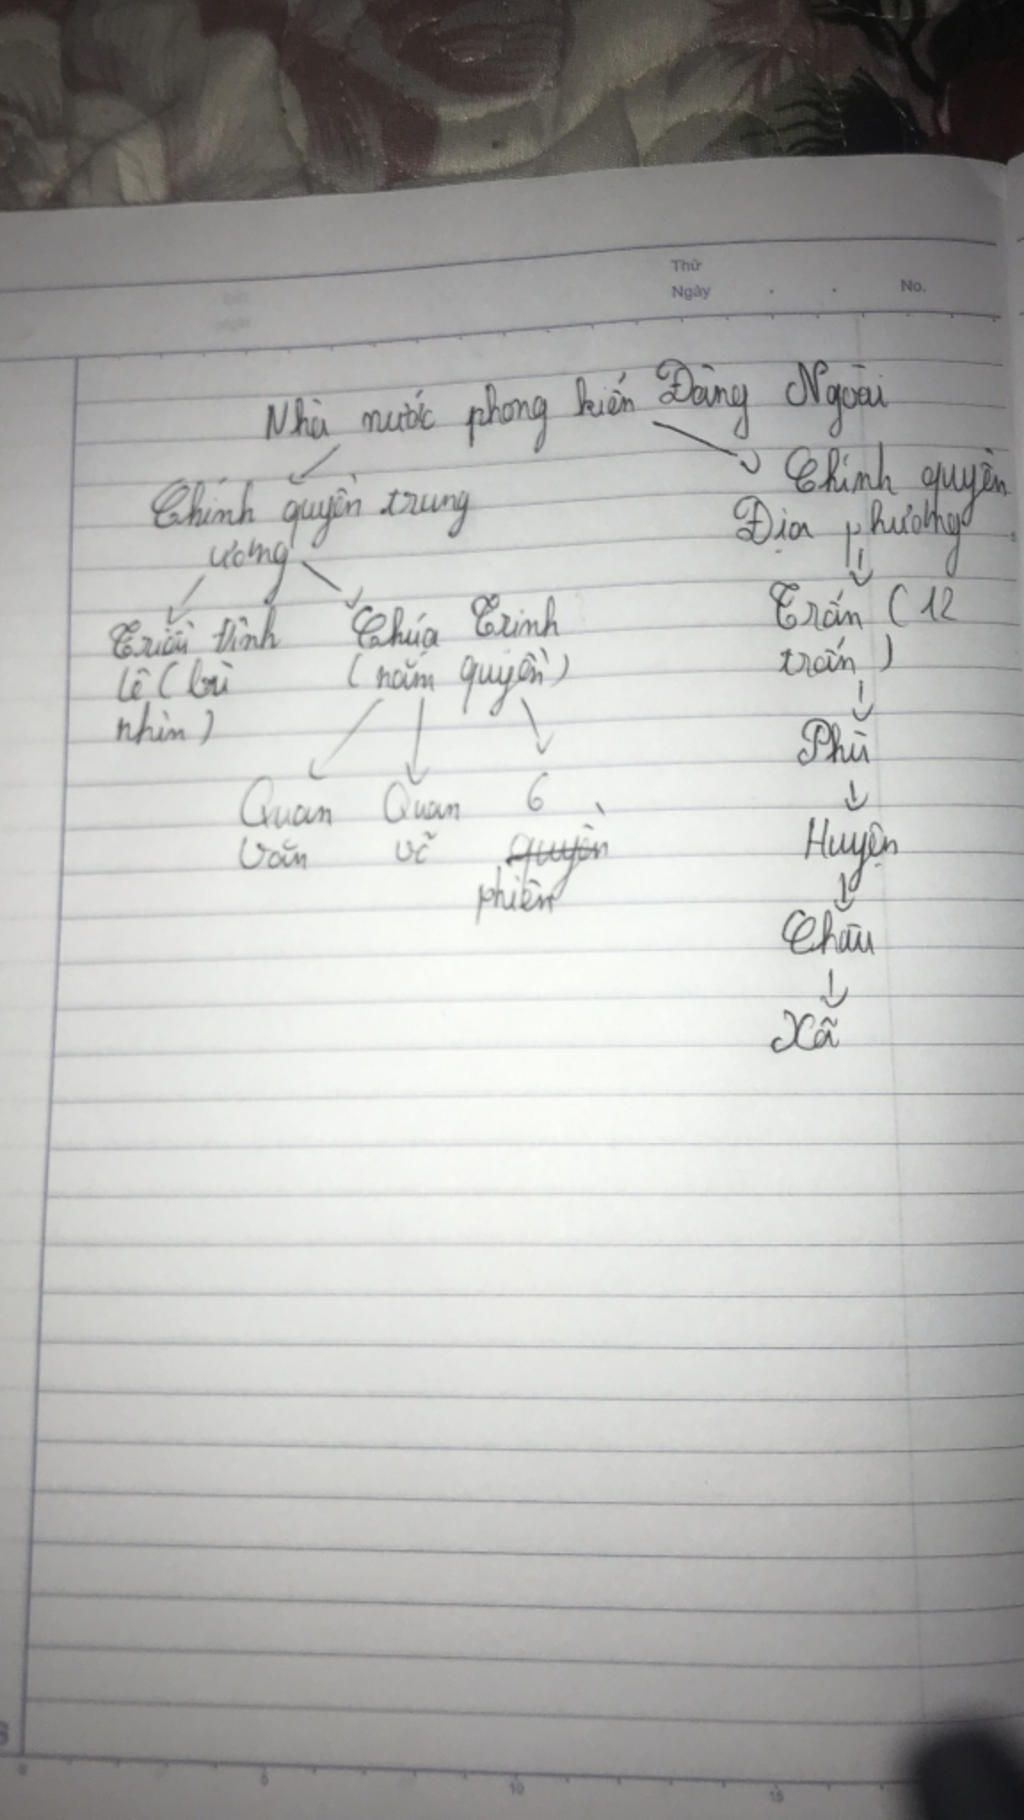 Thứ
Ngày
No.
Nhà nước phong kiến Đàng Ngoài
Chính quyền trung
ương
Triều đình
Lê (bù
nhìn)
Chúa Trịnh
(nắm quyền)
Quan
văn
Quan
võ
6
quyền
phiên
Chính quyền
Địa phương
Trấn (12
trấn)
Phủ
Huyện
Châu
Xã
0
5
10
15